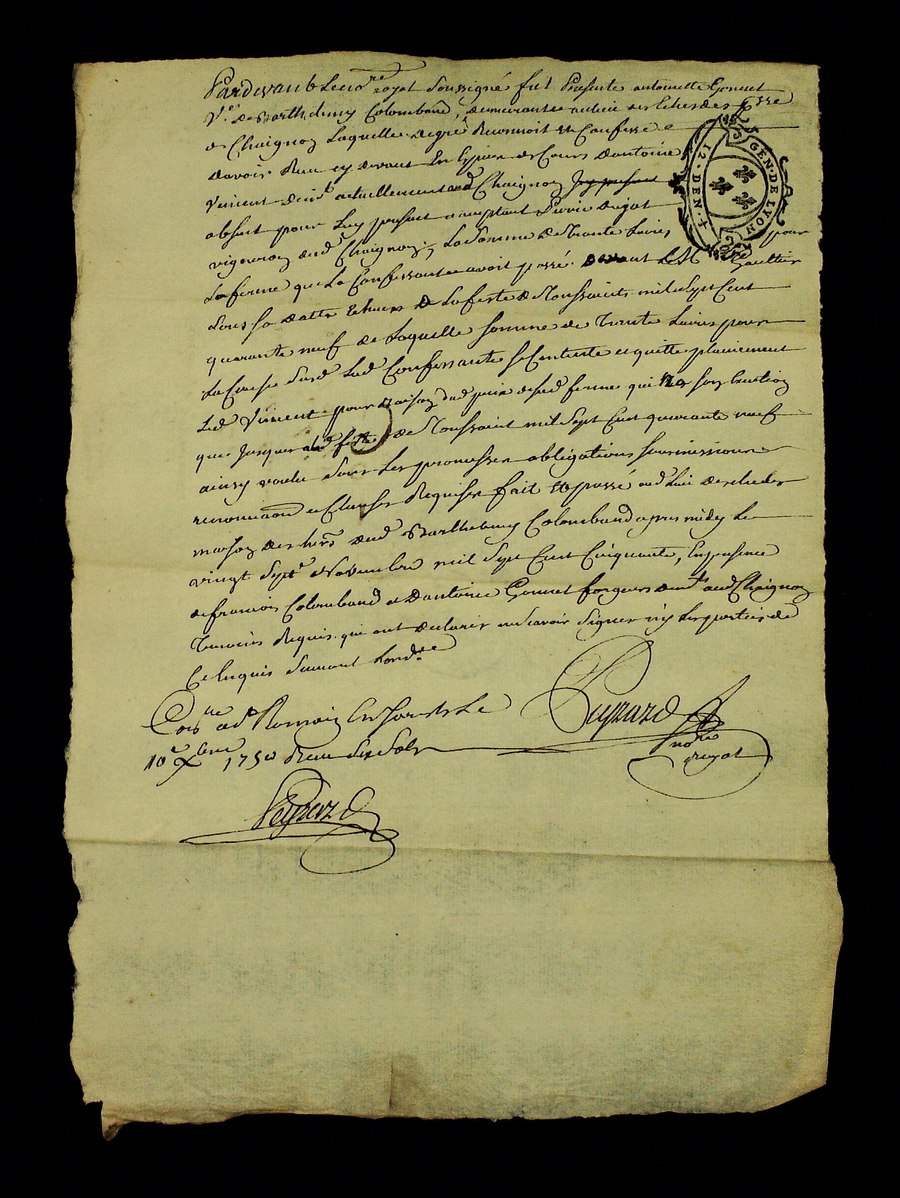 Pardevant le no.re royal soussigné fut presente antoinette Gonnet
V.e de Barthelemy Colomband, demeurante au lieu des
de Chaignoz Laquelle degré Reconnoit et Confesse
davoir Reçu cy devant En Espece de Cours dantoine
Vincent actuellement aud Chaignoz
absent pour Luy present acceptant Pierre
vigneron aud Chaignoz, La Somme De Trante Livres pour
La ferme que La Confessante avoit passé devant Me Gaultier
sous sa datte Echue De La feste de Toussaints mil Sept Cent
quarante neuf de Laquelle Somme de Trante Livres pour
La Cause Susd Lad Confessante se Contente et quitte plainement
Led Vincent pour Raison dud prix de sad ferme qui
que jusques a lad feste de Toussaint mil Sept Cent quarante neuf
ainsy voulu sous Les promesses obligations soumissions
renonciaõn et Clauses Requises fait et passé aud Lieu
maison des hers dud Barthelemy Colomband apres midy Le
vingt Sept Novembre mil Sept Cent Cinquante, En presence
de francois Colomband et Dantoine Gonnet forgeurs aud Chaignoz
Temoins Requis qui ont declarés ne scavoir Signer ny Les parties de
Ce Enquis Suivant Lord.ce
GEN. DE LYON
12. DEN.
Con.lle ad St Romain En Jarets Le
10.e Xbre 1750 Reçu Six Sols
Peyrard
no.re
royal
Peyrard